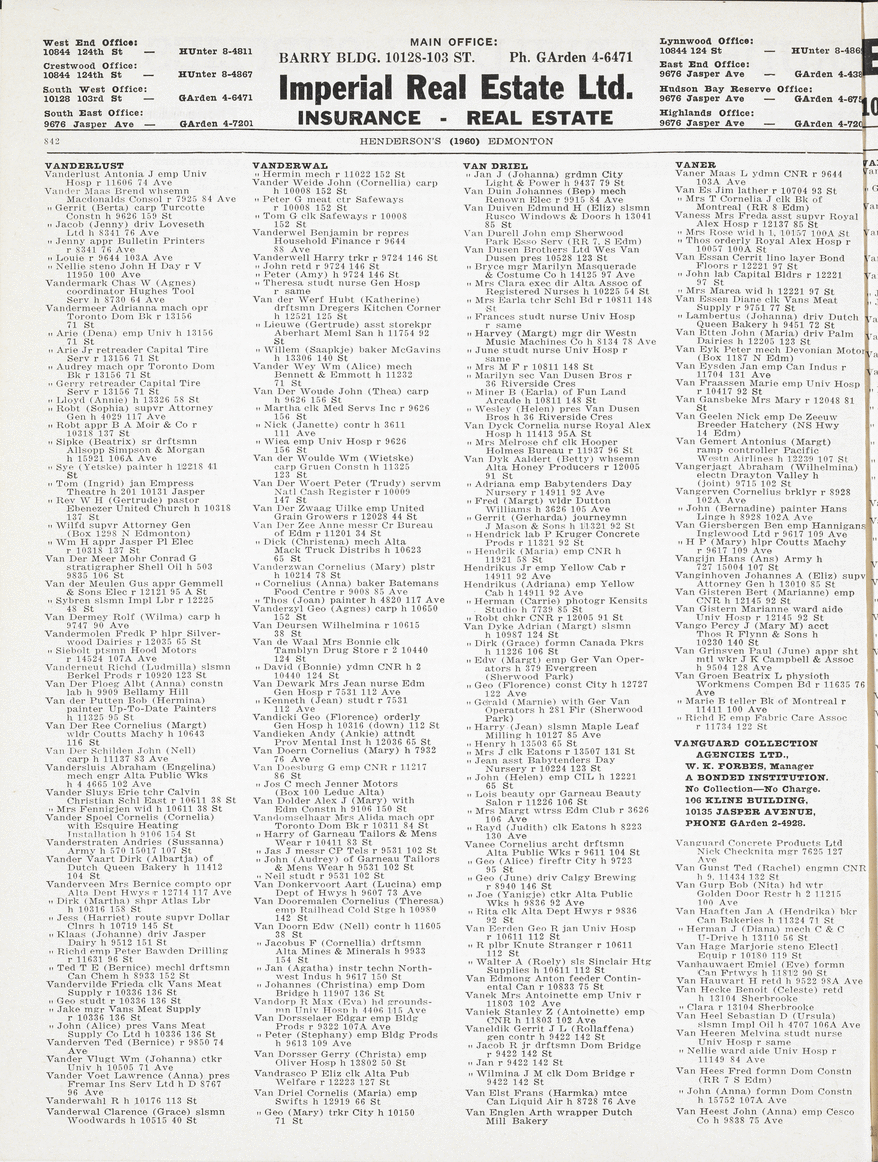 West End Office:
10844 124th St — HUnter 8-4811
Crestwood Office:
10844 124th St — HUnter 8-4867
South West Office:
10128 103rd St — GArden 4-6471
South East Office:
9676 Jasper Ave — GArden 4-7201
MAIN OFFICE:
BARRY BLDG. 10128-103 ST. Ph. GArden 4-6471
Imperial Real Estate Ltd.
INSURANCE - REAL ESTATE
Lynnwood Office:
10844 124 St — HUnter 8-486
East End Office:
9676 Jasper Ave — GArden 4-43
Hudson Bay Reserve Office:
9676 Jasper Ave — GArden 4-67
Highlands Office:
9676 Jasper Ave — GArden 4-720
842 HENDERSON'S (1960) EDMONTON
VANDERLUST
Vanderlust Antonia J emp Univ
Hosp r 11606 74 Ave
Vander Maas Brend whsemn
Macdonalds Consol r 7925 84 Ave
" Gerrit (Berta) carp Turcotte
Constn h 9626 159 St
" Jacob (Jenny) driv Loveseth
Ltd h 8341 76 Ave
" Jenny appr Bulletin Printers
r 8341 76 Ave
" Louie r 9644 103A Ave
" Nellie steno John H Day r V
11950 100 Ave
Vandermark Chas W (Agnes)
coordinator Hughes Tool
Serv h 8730 64 Ave
Vandermeer Adriana mach opr
Toronto Dom Bk r 13156
71 St
" Arie (Dena) emp Univ h 13156
71 St
" Arie Jr retreader Capital Tire
Serv r 13156 71 St
" Audrey mach opr Toronto Dom
Bk r 13156 71 St
" Gerry retreader Capital Tire
Serv r 13156 71 St
" Lloyd (Annie) h 13326 58 St
" Robt (Sophia) supvr Attorney
Gen h 4029 117 Ave
" Robt appr B A Moir & Co r
10318 137 St
" Sipke (Beatrix) sr drftsmn
Allsopp Simpson & Morgan
h 15921 106A Ave
" Sye (Yetske) painter h 12218 41
St
" Tom (Ingrid) jan Empress
Theatre h 201 10131 Jasper
" Rev W H (Gertrude) pastor
Ebenezer United Church h 10318
137 St
" Wilfd supvr Attorney Gen
(Box 1298 N Edmonton)
" Wm H appr Jasper Pl Elec
r 10318 137 St
Van Der Meer Mohr Conrad G
stratigrapher Shell Oil h 503
9835 106 St
Van der Meulen Gus appr Gemmell
& Sons Elec r 12121 95 A St
" Sybren slsmn Impl Lbr r 12225
48 St
Van Dermey Rolf (Wilma) carp h
9747 90 Ave
Vandermolen Fredk P hlpr Silver-
wood Dairies r 12035 65 St
" Siebolt ptsmn Hood Motors
r 14524 107A Ave
Vanderneut Richd (Ludmilla) slsmn
Berkel Prods r 10920 123 St
Van Der Ploeg Albt (Anna) constn
lab h 9909 Bellamy Hill
Van der Putten Bob (Hermina)
painter Up-To-Date Painters
h 11325 95 St
Van Der Ree Cornelius (Margt)
wldr Coutts Machy h 10643
116 St
Van Der Schilden John (Nell)
carp h 11137 83 Ave
Vandersluis Abraham (Engelina)
mech engr Alta Public Wks
h 4 4665 102 Ave
Vander Sluys Erie tchr Calvin
Christian Schl East r 10611 38 St
" Mrs Fennigjen wid h 10611 38 St
Vander Spoel Cornelis (Cornelia)
with Esquire Heating
Installation h 9106 154 St
Vanderstraten Andries (Susanna)
Army h 570 15017 107 St
Vander Vaart Dirk (Albartja) of
Dutch Queen Bakery h 11412
104 St
Vanderveen Mrs Bernice compto opr
Alta Dept Hwys r 12714 117 Ave
" Dirk (Martha) shpr Atlas Lbr
h 10316 158 St
" Jess (Harriet) route supvr Dollar
Clnrs h 10719 145 St
" Klaas (Johanne) driv Jasper
Dairy h 9512 151 St
" Richd emp Peter Bawden Drilling
r 11631 96 St
" Ted T E (Bernice) mechl drftsmn
Can Chem h 8933 152 St
Vandervilde Frieda clk Vans Meat
Supply r 10336 136 St
" Geo studt r 10336 136 St
" Jake mgr Vans Meat Supply
r 10336 136 St
" John (Alice) pres Vans Meat
Supply Co Ltd h 10336 136 St
Vanderven Ted (Bernice) r 9850 74
Ave
Vander Vlugt Wm (Johanna) ctkr
Univ h 10505 71 Ave
Vander Voet Lawrence (Anna) pres
Fremar Ins Serv Ltd h D 8767
96 Ave
Vanderwahl R h 10176 113 St
Vanderwal Clarence (Grace) slsmn
Woodwards h 10515 40 St
VANDERWAL
" Hermin mech r 11022 152 St
Vander Weide John (Cornellia) carp
h 10008 152 St
" Peter G meat ctr Safeways
r 10008 152 St
" Tom G clk Safeways r 10008
152 St
Vanderwel Benjamin br repres
Household Finance r 9644
88 Ave
Vanderwell Harry trkr r 9724 146 St
" John retd r 9724 146 St
" Peter (Amy) h 9724 146 St
" Theresa studt nurse Gen Hosp
r same
Van der Werf Hubt (Katherine)
drftsmn Dregers Kitchen Corner
h 12521 125 St
" Lieuwe (Gertrude) asst storekpr
Aberhart Meml San h 11754 92
St
" Willem (Saapkje) baker McGavins
h 13306 140 St
Vander Wey Wm (Alice) mech
Bennett & Emmott h 11232
71 St
Van Der Woude John (Thea) carp
h 9626 156 St
" Martha clk Med Servs Inc r 9626
156 St
" Nick (Janette) contr h 3611
111 Ave
" Wiea emp Univ Hosp r 9626
156 St
Van der Woulde Wm (Wietske)
carp Gruen Constn h 11325
123 St
Van Der Woert Peter (Trudy) servm
Natl Cash Register r 10009
147 St
Van Der Zwaag Uilke emp United
Grain Growers r 12028 44 St
Van Der Zee Anne messr Cr Bureau
of Edm r 11201 34 St
" Dick (Christena) mech Alta
Mack Truck Distribs h 10623
65 St
Vanderzwan Cornelius (Mary) plstr
h 10214 78 St
" Cornelius (Anna) baker Batemans
Food Centre r 9008 85 Ave
" Thos (Joan) painter h 4820 117 Ave
Vanderzyl Geo (Agnes) carp h 10650
152 St
Van Deursen Wilhelmina r 10615
38 St
Van de Waal Mrs Bonnie clk
Tamblyn Drug Store r 2 10440
124 St
" David (Bonnie) ydmn CNR h 2
10440 124 St
Van Dewark Mrs Jean nurse Edm
Gen Hosp r 7531 112 Ave
" Kenneth (Jean) studt r 7531
112 Ave
Vandicki Geo (Florence) orderly
Gen Hosp h 10316 (down) 112 St
Vandieken Andy (Ankie) attndt
Prov Mental Inst h 12036 65 St
Van Doern Cornelius (Mary) h 7932
76 Ave
Van Doesburg G emp CNR r 11217
86 St
" Jos C mech Jenner Motors
(Box 100 Leduc Alta)
Van Dolder Alex J (Mary) with
Edm Constn h 9106 150 St
Vandomselhaar Mrs Alida mach opr
Toronto Dom Bk r 10311 84 St
" Harry of Garneau Tailors & Mens
Wear r 10411 83 St
" Jas J messr CP Tels r 9531 102 St
" John (Audrey) of Garneau Tailors
& Mens Wear h 9531 102 St
" Neil studt r 9531 102 St
Van Donkervoort Aart (Lucina) emp
Dept of Hwys h 9607 73 Ave
Van Dooremalen Cornelius (Theresa)
emp Railhead Cold Stge h 10980
142 St
Van Doorn Edw (Nell) contr h 11605
38 St
" Jacobus F (Cornellia) drftsmn
Alta Mines & Minerals h 9933
154 St
" Jan (Agatha) instr techn North-
west Indus h 9617 150 St
" Johannes (Christina) emp Dom
Bridge h 11907 136 St
Vandorp R Max (Eva) hd grounds-
mn Univ Hosp h 4406 115 Ave
Van Dorsselaer Edgar emp Bldg
Prods r 9322 107A Ave
" Peter (Stephany) emp Bldg Prods
h 9613 109 Ave
Van Dorsser Gerry (Christa) emp
Oliver Hosp h 13802 50 St
Vandrasco P Eliz clk Alta Pub
Welfare r 12223 127 St
Van Driel Cornelis (Maria) emp
Swifts h 12919 66 St
" Geo (Mary) trkr City h 10150
71 St
VAN DRIEL
" Jan J (Johanna) grdmn City
Light & Power h 9437 79 St
Van Duin Johannes (Bep) mech
Renown Elec r 9915 84 Ave
Van Duiven Edmund H (Eliz) slsmn
Rusco Windows & Doors h 13041
85 St
Van Durell John emp Sherwood
Park Esso Serv (RR 7, S Edm)
Van Dusen Brothers Ltd Wes Van
Dusen pres 10528 123 St
" Bryce mgr Marilyn Masquerade
& Costume Co h 14125 97 Ave
" Mrs Clara exec dir Alta Assoc of
Registered Nurses h 10225 54 St
" Mrs Earla tchr Schl Bd r 10811 148
St
" Frances studt nurse Univ Hosp
r same
" Harvey (Margt) mgr dir Westn
Music Machines Co h 8134 78 Ave
" June studt nurse Univ Hosp r
same
" Mrs M F r 10811 148 St
" Marilyn sec Van Dusen Bros r
36 Riverside Cres
" Miner B (Earla) of Fun Land
Arcade h 10811 148 St
" Wesley (Helen) pres Van Dusen
Bros h 36 Riverside Cres
Van Dyck Cornelia nurse Royal Alex
Hosp h 11413 95A St
" Mrs Melrose chf clk Hooper
Holmes Bureau r 11937 96 St
Van Dyk Aaldert (Betty) whsemn
Alta Honey Producers r 12005
91 St
" Adriana emp Babytenders Day
Nursery r 14911 92 Ave
" Fred (Margt) wldr Dutton
Williams h 3626 105 Ave
" Gerrit (Gerharda) journeymn
J Mason & Sons h 11321 92 St
" Hendrick lab P Kruger Concrete
Prods r 11321 92 St
" Hendrik (Maria) emp CNR h
11921 58 St
Hendrikus Jr emp Yellow Cab r
14911 92 Ave
Hendrikus (Adriana) emp Yellow
Cab h 14911 92 Ave
" Herman (Carrie) photogr Kensits
Studio h 7739 85 St
" Robt chkr CNR r 12005 91 St
Van Dyke Adrian (Margt) slsmn
h 10987 124 St
" Dirk (Grace) formn Canada Pkrs
h 11226 106 St
" Edw (Margt) emp Ger Van Oper-
ators h 379 Evergreen
(Sherwood Park)
" Geo (Florence) const City h 12727
122 Ave
" Gerald (Marnie) with Ger Van
Operators h 281 Fir (Sherwood
Park)
" Harry (Jean) slsmn Maple Leaf
Milling h 10127 85 Ave
" Henry h 13503 65 St
" Mrs J clk Eatons r 13507 131 St
" Jean asst Babytenders Day
Nursery r 10224 123 St
" John (Helen) emp CIL h 12221
65 St
" Lois beauty opr Garneau Beauty
Salon r 11226 106 St
" Mrs Margt wtrss Edm Club r 3626
106 Ave
" Rayd (Judith) clk Eatons h 8223
130 Ave
Vanee Cornelius archt drftsmn
Alta Public Wks r 9611 104 St
" Geo (Alice) fireftr City h 9723
95 St
" Geo (June) driv Calgy Brewing
r 8940 146 St
" Joe (Yanigje) ctkr Alta Public
Wks h 9836 92 Ave
" Rita clk Alta Dept Hwys r 9836
92 St
Van Eerden Geo R jan Univ Hosp
r 10611 112 St
" R plbr Knute Stranger r 10611
112 St
" Walter A (Roely) sls Sinclair Htg
Supplies h 10611 112 St
Van Edmong Anton feeder Contin-
ental Can r 10833 75 St
Vanek Mrs Antoinette emp Univ r
11803 102 Ave
Vaniek Stanley Z (Antoinette) emp
CNR h 11803 102 Ave
Vaneldik Gerrit J L (Rollaffena)
gen contr h 9422 142 St
" Jacob R jr drftsmn Dom Bridge
r 9422 142 St
" Jan r 9422 142 St
" Wilmina J M clk Dom Bridge r
9422 142 St
Van Elst Frans (Harmka) mtce
Can Liquid Air h 8728 76 Ave
Van Englen Arth wrapper Dutch
Mill Bakery
VANER
Vaner Maas L ydmn CNR r 9644
103A Ave
Van Es Jim lather r 10704 93 St
" Mrs T Cornelia J clk Bk of
Montreal (RR 8 Edm)
Vaness Mrs Freda asst supvr Royal
Alex Hosp r 12137 85 St
" Mrs Rose wid h 1, 10157 100A St
" Thos orderly Royal Alex Hosp r
10057 100A St
Van Essan Cerrit lino layer Bond
Floors r 12221 97 St
" John lab Capital Bldrs r 12221
97 St
" Mrs Marea wid h 12221 97 St
Van Essen Diane clk Vans Meat
Supply r 9751 77 St
" Lambertus (Johanna) driv Dutch
Queen Bakery h 9451 72 St
Van Etten John (Maria) driv Palm
Dairies h 12205 123 St
Van Eyk Peter mech Devonian Motor
(Box 1187 N Edm)
Van Eysden Jan emp Can Indus r
11704 131 Ave
Van Fraassen Marie emp Univ Hosp
r 10417 92 St
Van Gansbeke Mrs Mary r 12048 81
St
Van Geelen Nick emp De Zeeuw
Breeder Hatchery (NS Hwy
14 Edm)
Van Gemert Antonius (Margt)
ramp controller Pacific
Westn Airlines h 12239 107 St
Vangerjagt Abraham (Wilhelmina)
electn Drayton Valley h
(joint) 9715 102 St
Vangerven Cornelus brklyr r 8928
102A Ave
" John (Bernadine) painter Hans
Linge h 8928 102A Ave
Van Giersbergen Ben emp Hannigans
Inglewood Ltd r 9617 109 Ave
" H P (Mary) hlpr Coutts Machy
r 9617 109 Ave
Vangijn Hans (Ans) Army h
727 15004 107 St
Vanginhoven Johannes A (Eliz) supv
Attorney Gen h 13010 85 St
Van Gisteren Bert (Marianne) emp
CNR h 12145 92 St
Van Gistern Marianne ward aide
Univ Hosp r 12145 92 St
Vango Percy J (Mary M) acct
Thos R Flynn & Sons h
10230 140 St
Van Grinsven Paul (June) appr sht
mtl wkr J K Campbell & Assoc
h 9504 128 Ave
Van Groen Beatrix L physioth
Workmens Compen Bd r 11635 76
Ave
" Marie B teller Bk of Montreal r
11411 100 Ave
" Richd E emp Fabric Care Assoc
r 11734 122 St
VANGUARD COLLECTION
AGENCIES LTD.,
W. K. FORBES, Manager
A BONDED INSTITUTION.
No Collection—No Charge.
106 KLINE BUILDING,
10135 JASPER AVENUE,
PHONE GArden 2-4928.
Vanguard Concrete Products Ltd
Nick Checknita mgr 7625 127
Ave
Van Gunst Ted (Rachel) engmn CNR
h 9, 11434 132 St
Van Gurp Bob (Nita) hd wtr
Golden Door Restr h 2 11215
100 Ave
Van Haaften Jan A (Hendrika) bkr
Can Bakeries h 11324 71 St
" Herman J (Diana) mech C & C
U-Drive h 13110 56 St
Van Hage Marjorie steno Electl
Equip r 10180 119 St
Vanhauwaert Emiel (Eve) formn
Can Frtwys h 11812 90 St
Van Hauwart H retd h 9522 98A Ave
Van Hecke Benoit (Celeste) retd
h 13104 Sherbrooke
" Clara r 13104 Sherbrooke
Van Heel Sebastian D (Ursula)
slsmn Impl Oil h 4707 106A Ave
Van Heeren Melvina studt nurse
Univ Hosp r same
" Nellie ward aide Univ Hosp r
11149 84 Ave
Van Hees Fred formn Dom Constn
(RR 7 S Edm)
" John (Anna) formn Dom Constn
h 15752 107A Ave
Van Heest John (Anna) emp Cesco
Co h 9838 75 Ave